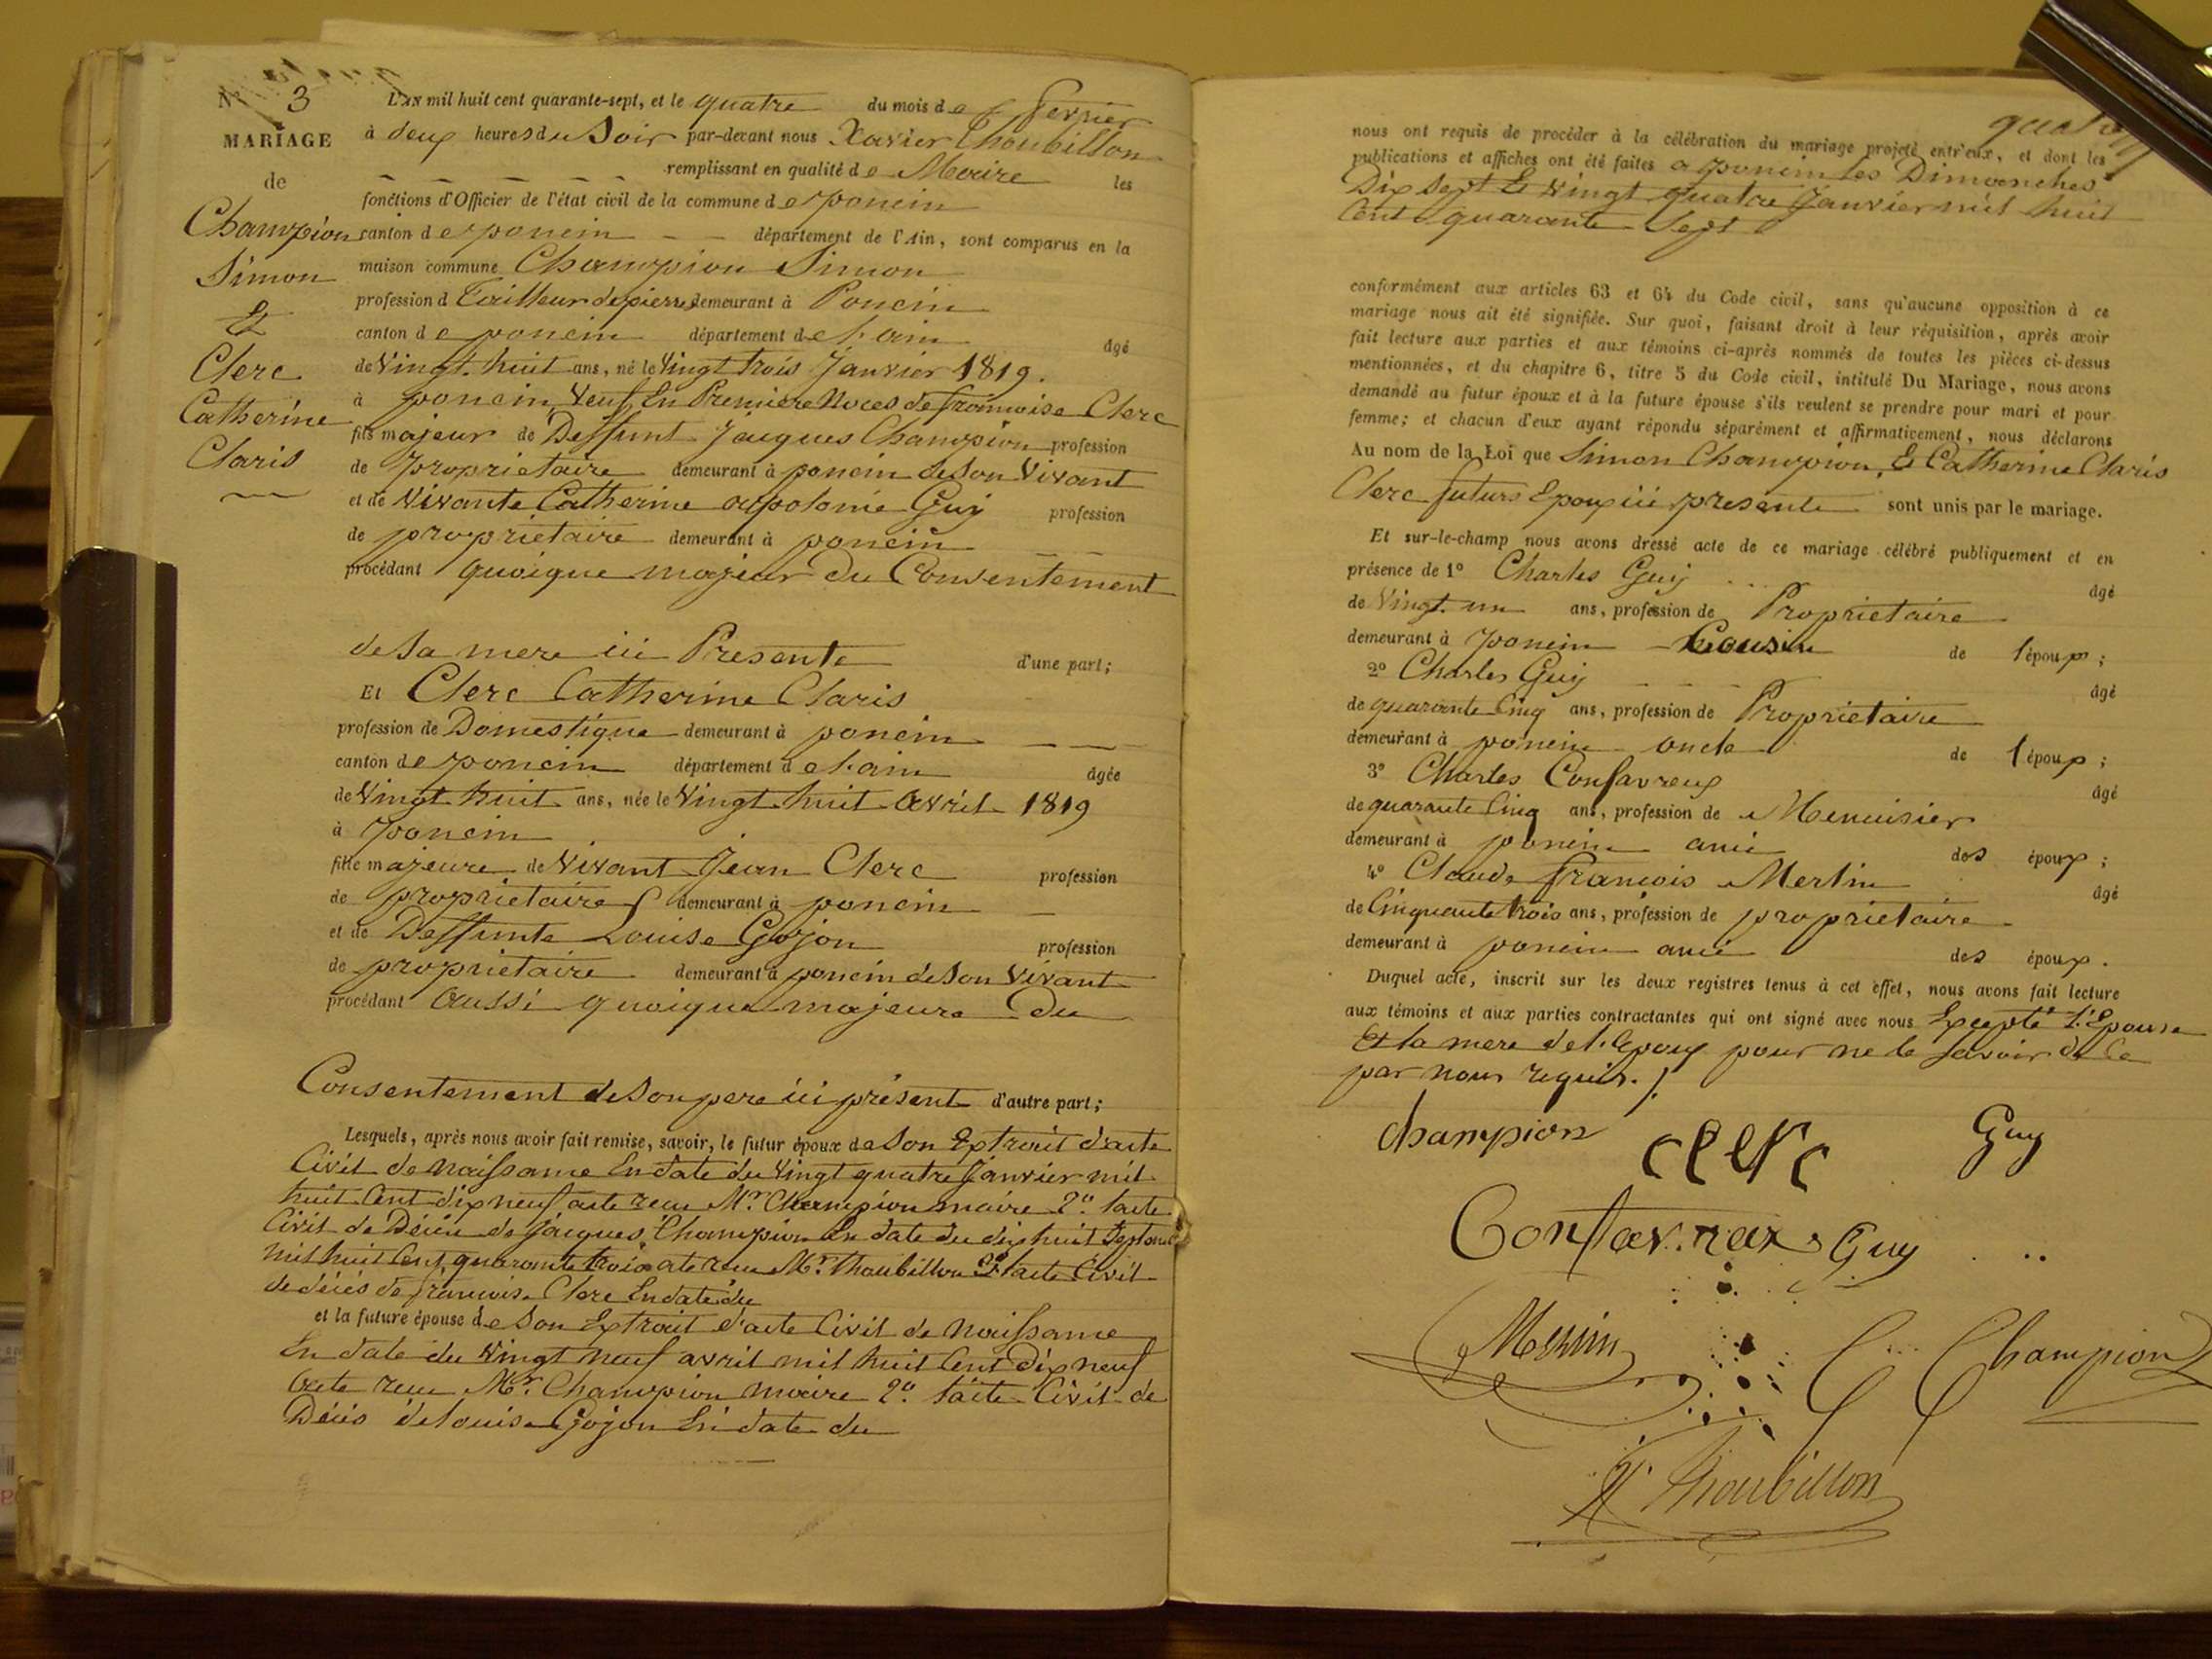 N° 3
MARIAGE
de
Champion
Simon
Et
Clerc
Catherine
Claris
L'an mil huit cent quarante-sept, et le quatre du mois de fevrier
à deux heures du Soir par-devant nous Xavier Thoubillon
remplissant en qualité de Maire les
fonctions d'Officier de l'état civil de la commune de poncin
canton de poncin département de l'Ain, sont comparus en la
maison commune Champion Simon
profession d Tailleur de pierres demeurant à Poncin
canton de poncin département de l'ain âgé
de Vingt huit ans, né le Vingt trois Janvier 1819.
à poncin, Veuf En Premiere Noces de francoise Clerc
fils majeur de Deffunt Jacques Champion profession
de proprietaire demeurant à poncin de Son Vivant
et de Vivante Catherine apolonie Guy profession
de proprietaire demeurant à poncin
procédant quoique majeur Du Consentement
de Sa mere ici Presente d'une part;
Et Clerc Catherine Claris
profession de Domestique demeurant à poncin
canton de poncin département de l'ain âgée
de Vingt huit ans, née le Vingt huit Avril 1819
à poncin
fille majeure de Vivant Jean Clerc profession
de proprietaire demeurant à poncin
et de Deffunte Louise Gojon profession
de proprietaire demeurant à poncin de Son Vivant
procédant aussi quoique majeure Du
Consentement de Son pere ici présent d'autre part;
Lesquels, après nous avoir fait remise, savoir, le futur époux de Son Extrait d'acte
Civil de naissance En date du Vingt quatre Janvier mil
huit Cent dix neuf acte recu Mr. Champion maire 2° l'acte
Civil de Décés de Jacques Champion En date du dix huit Septemb
mil huit Cent quarante trois acte recu Mr. Thoubillon 3° l'acte Civil
de décés de francoise Clerc En date du
et la future épouse de Son Extrait d'acte Civil de Naissance
En date du Vingt neuf avril mil huit Cent Dix neuf
acte recu Mr. Champion maire 2° l'acte Civil de
Décés de Louise Gojon En date du
nous ont requis de procéder à la célébration du mariage projeté entr'eux, et dont les
publications et affiches ont été faites a poncin les Dimanches
Dix Sept Et Vingt quatre Janvier mil huit
Cent quarante Sept
conformément aux articles 63 et 64 du Code civil, sans qu'aucune opposition à ce
mariage nous ait été signifiée. Sur quoi, faisant droit à leur réquisition, après avoir
fait lecture aux parties et aux témoins ci-après nommés de toutes les pièces ci-dessus
mentionnées, et du chapitre 6, titre 5 du Code civil, intitulé Du Mariage, nous avons
demandé au futur époux et à la future épouse s'ils veulent se prendre pour mari et pour
femme; et chacun d'eux ayant répondu séparément et affirmativement, nous déclarons
Au nom de la Loi que Simon Champion, Et Catherine Claris
Clerc futurs Epoux ici presente sont unis par le mariage.
Et sur-le-champ nous avons dressé acte de ce mariage célébré publiquement et en
présence de 1° Charles Guy âgé
de Vingt un ans, profession de Proprietaire
demeurant à poncin Cousin de l'époux;
2° Charles Guy âgé
de quarante Cinq ans, profession de Proprietaire
demeurant à poncin oncle de l'époux;
3° Charles Confavreux âgé
de quarante Cinq ans, profession de Menuisier
demeurant à poncin ami des époux;
4° Claude francois Merlin âgé
de Cinquante trois ans, profession de proprietaire
demeurant à poncin ami des époux.
Duquel acte, inscrit sur les deux registres tenus à cet effet, nous avons fait lecture
aux témoins et aux parties contractantes qui ont signé avec nous Excepté l'Epouse
Et la mere de l'Epoux pour ne le savoir de ce
par nous requis.
champion clerc Guy
Confavreux Guy
Merlin C Champion
X Thoubillon